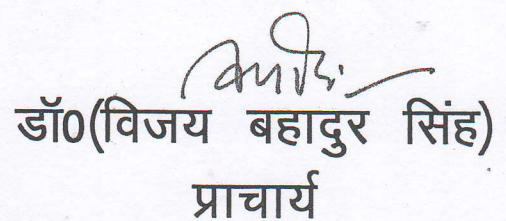 डॉ0(विजय बहादुर सिंह)
प्राचार्य